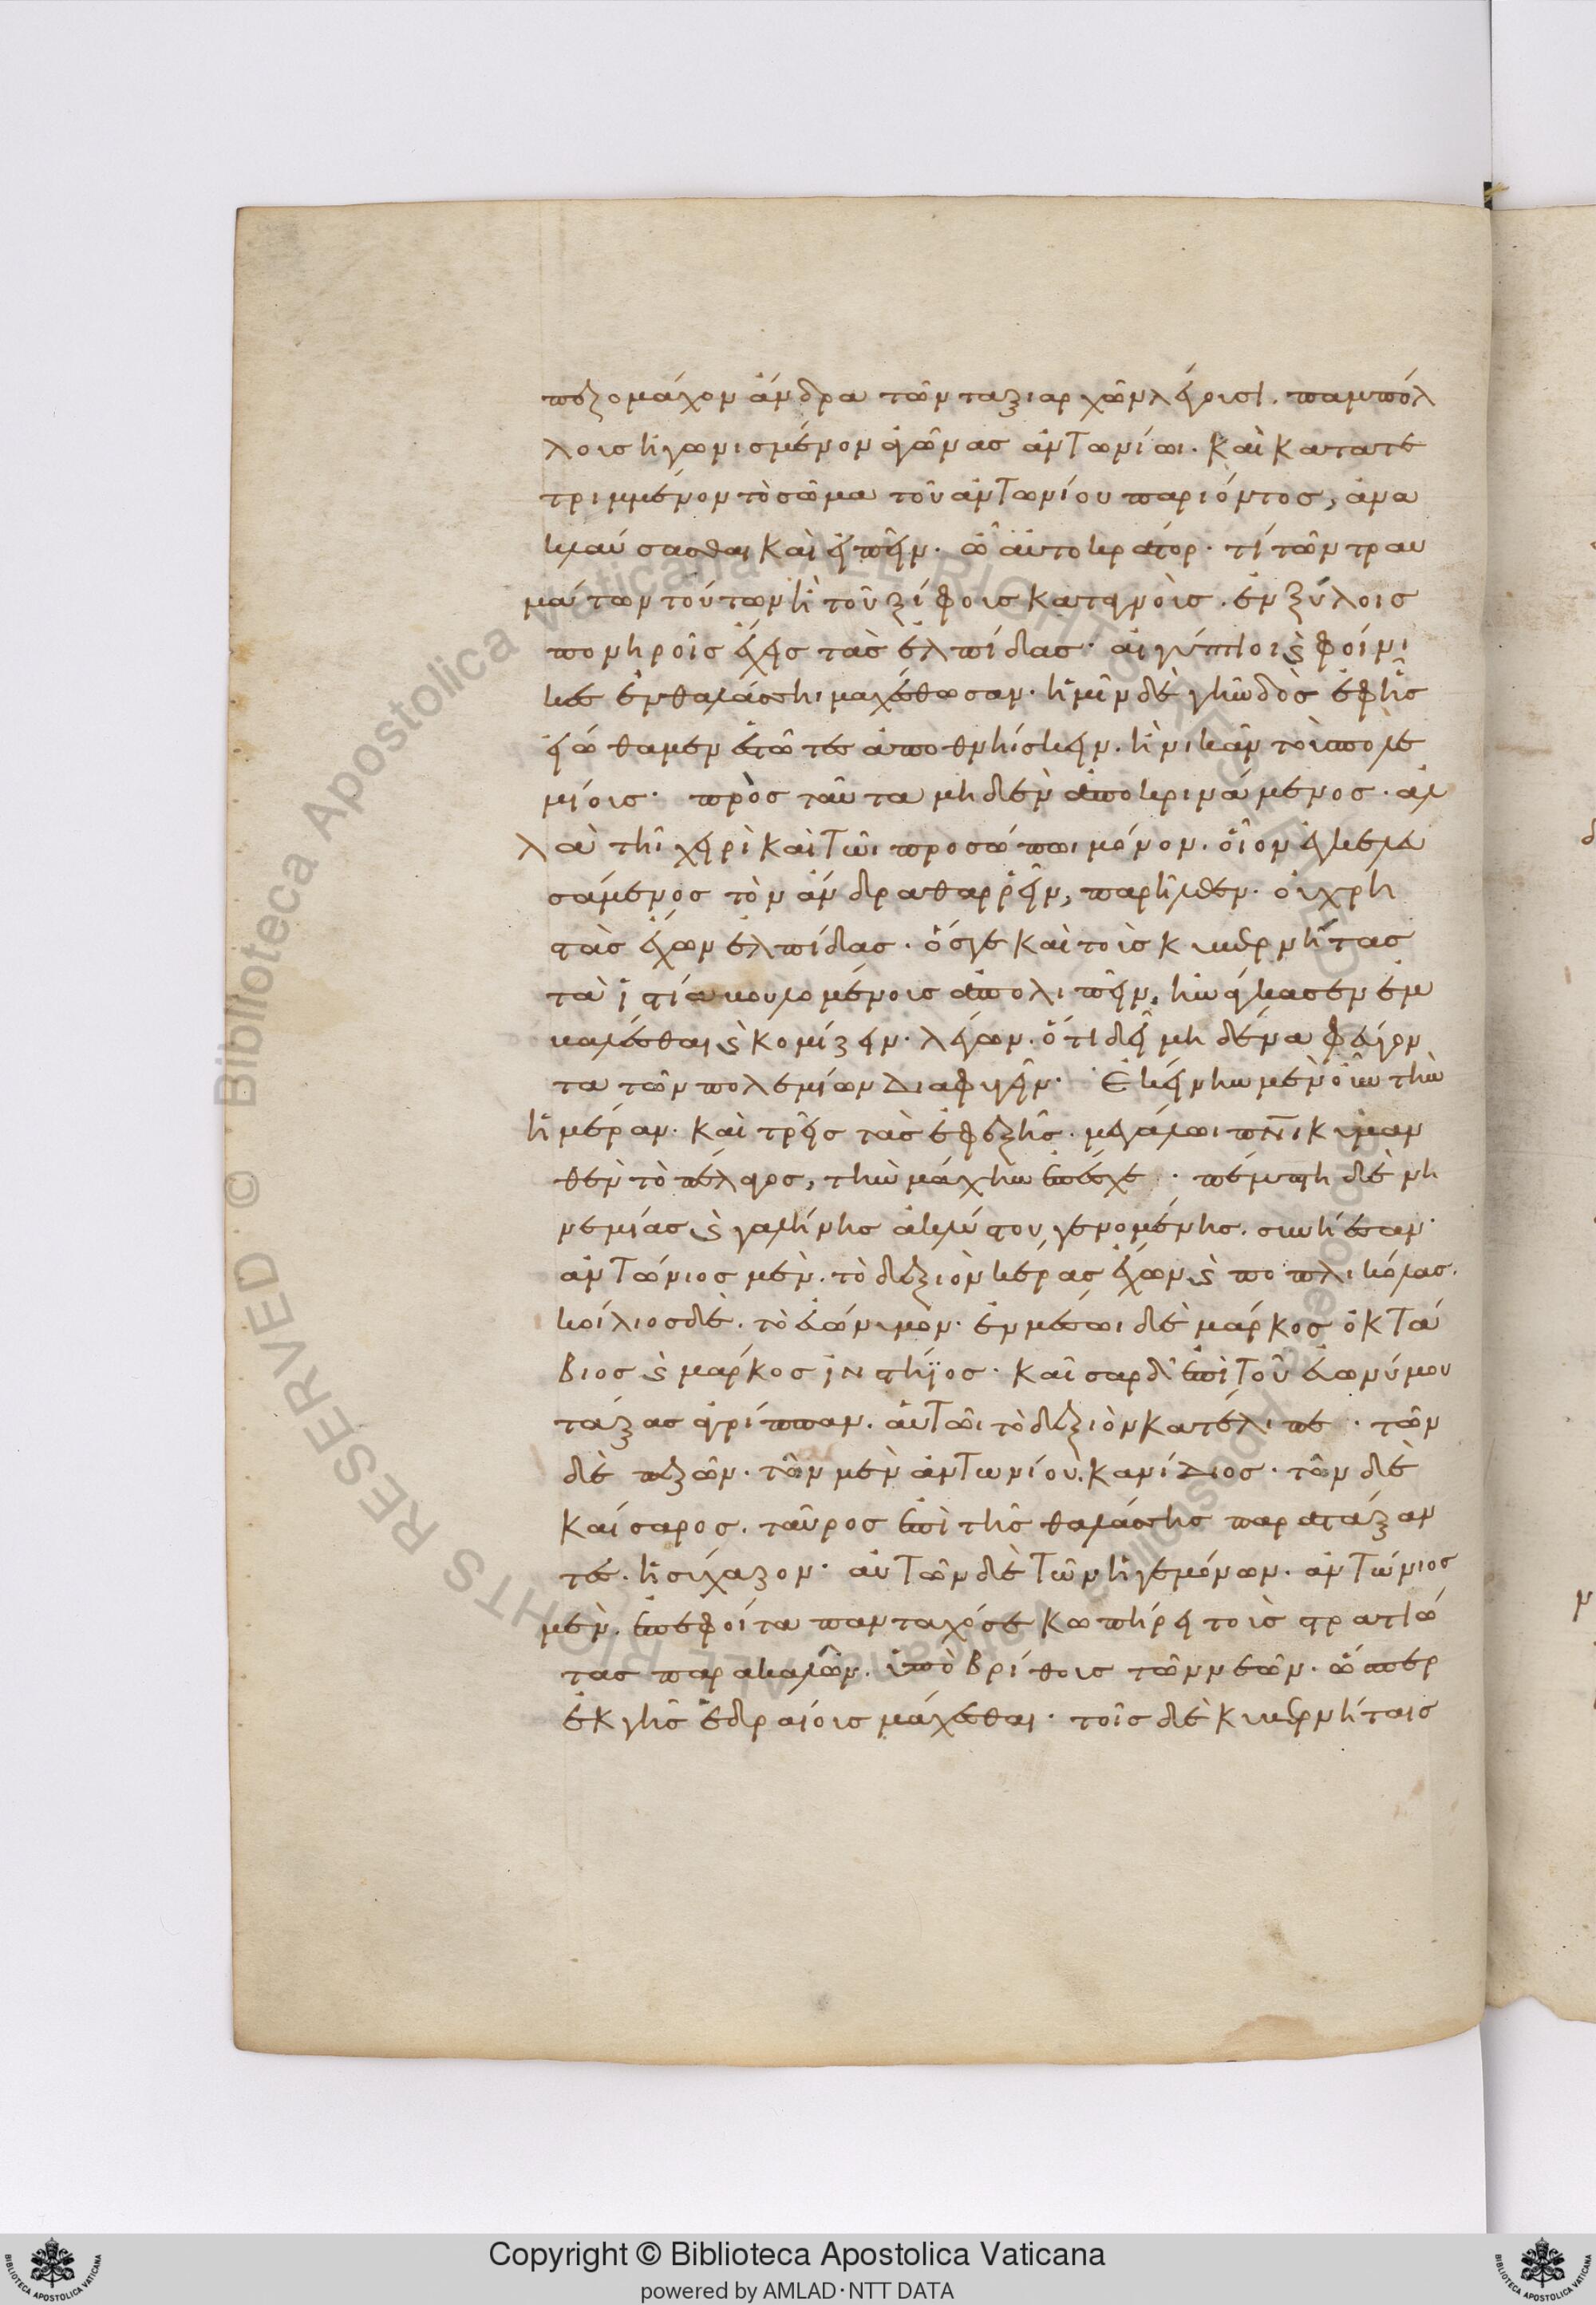 πεζομάχον ἄνδρα τῶν ταξιαρχῶν λέγουσι. παμπόλ
λους ἠγωνισμένον ἀγῶνας ἀντωνίωι. καὶ κατατε
τριμμένον τὸ σῶμα τοῦ ἀντωνίου παριόντος, ἀνα
κλαύσασθαι καὶ εἰπεῖν. ὦ αὐτοκράτορ. τί τῶν τραυ
μάτων τούτων ἢ τοῦ ξίφους καταγνοὺς. ἐν ξύλοις
πονηροῖς ἔχεις τὰς ἐλπίδας· αἰγύπτιοι ϗ φοίνι
κες ἐν θαλάσσηι μαχέσθωσαν. ἡμῖν δὲ γῆν δὸς ἐφ ἧς
εἰώθαμεν ἑστῶτες ἀποθνήσκειν. ἢ νικᾶν τοὺς πολε
μίους· πρὸς ταῦτα μηδὲν ἀποκρινάμενος. ἀλ
λὰ τῆι χειρὶ καὶ τῶι προσώπωι μόνον. οἷον ἐγκελευ
σάμενος τὸν ἄνδρα θαρρεῖν, παρῆλθεν. οὐ χρη
στὰς ἔχων ἐλπίδας. ὅς γε καὶ τοὺς κυβερνήτας
τὰ ἱστία βουλομένους ἀπολιπεῖν, ἠνάγκασεν ἐμ
βαλέσθαι ϗ κομίζειν. λέγων. ὅτι δεῖ μηδένα φεύγον
τα τῶν πολεμίων διαφυγεῖν. Ἐκείνην μὲν οὖν τὴν
ἡμέραν. καὶ τρεῖς τὰς ἐφεξῆς. μεγάλωι πνι κυμαν
θὲν τὸ πέλαγος, τὴν μάχην ἐπέσχε. πέμπτη δὲ νη
νεμίας ϗ γαλήνης ἀκλύστου γενομένης. συνήεσαν.
ἀντώνιος μὲν. τὸ δεξιὸν κέρας ἔχων ϗ ποπλικόλας.
κοίλιος δὲ. τὸ εὐώνυμον. ἐν μέσωι δὲ μάρκος ὀκτά
βιος ϗ μάρκος ἰνστήϊος. καῖσαρ δ' ἐπὶ τοῦ εὐωνύμου
τάξας ἀγρίππαν. αὑτῶι τὸ δεξιὸν κατέλιπε. τῶν
δὲ πεζῶν. τὸν μὲν ἀντωνίου. κανίδιος. τὸν δὲ
καίσαρος. ταῦρος ἐπὶ τῆς θαλάσσης παρατάξαν
τες. ἡσύχαζον. αὐτῶν δὲ τῶν ἡγεμόνων. ἀντώνιος
μὲν. ἐπεφοίτα πανταχόσε κωπήρει τοὺς στρατιώ
τας παρακαλῶν. ὑπὸ βρίθους τῶν νεῶν. ὥσπερ
ἐκ γῆς ἑδραίους μάχεσθαι. τοῖς δὲ κυβερνήταις